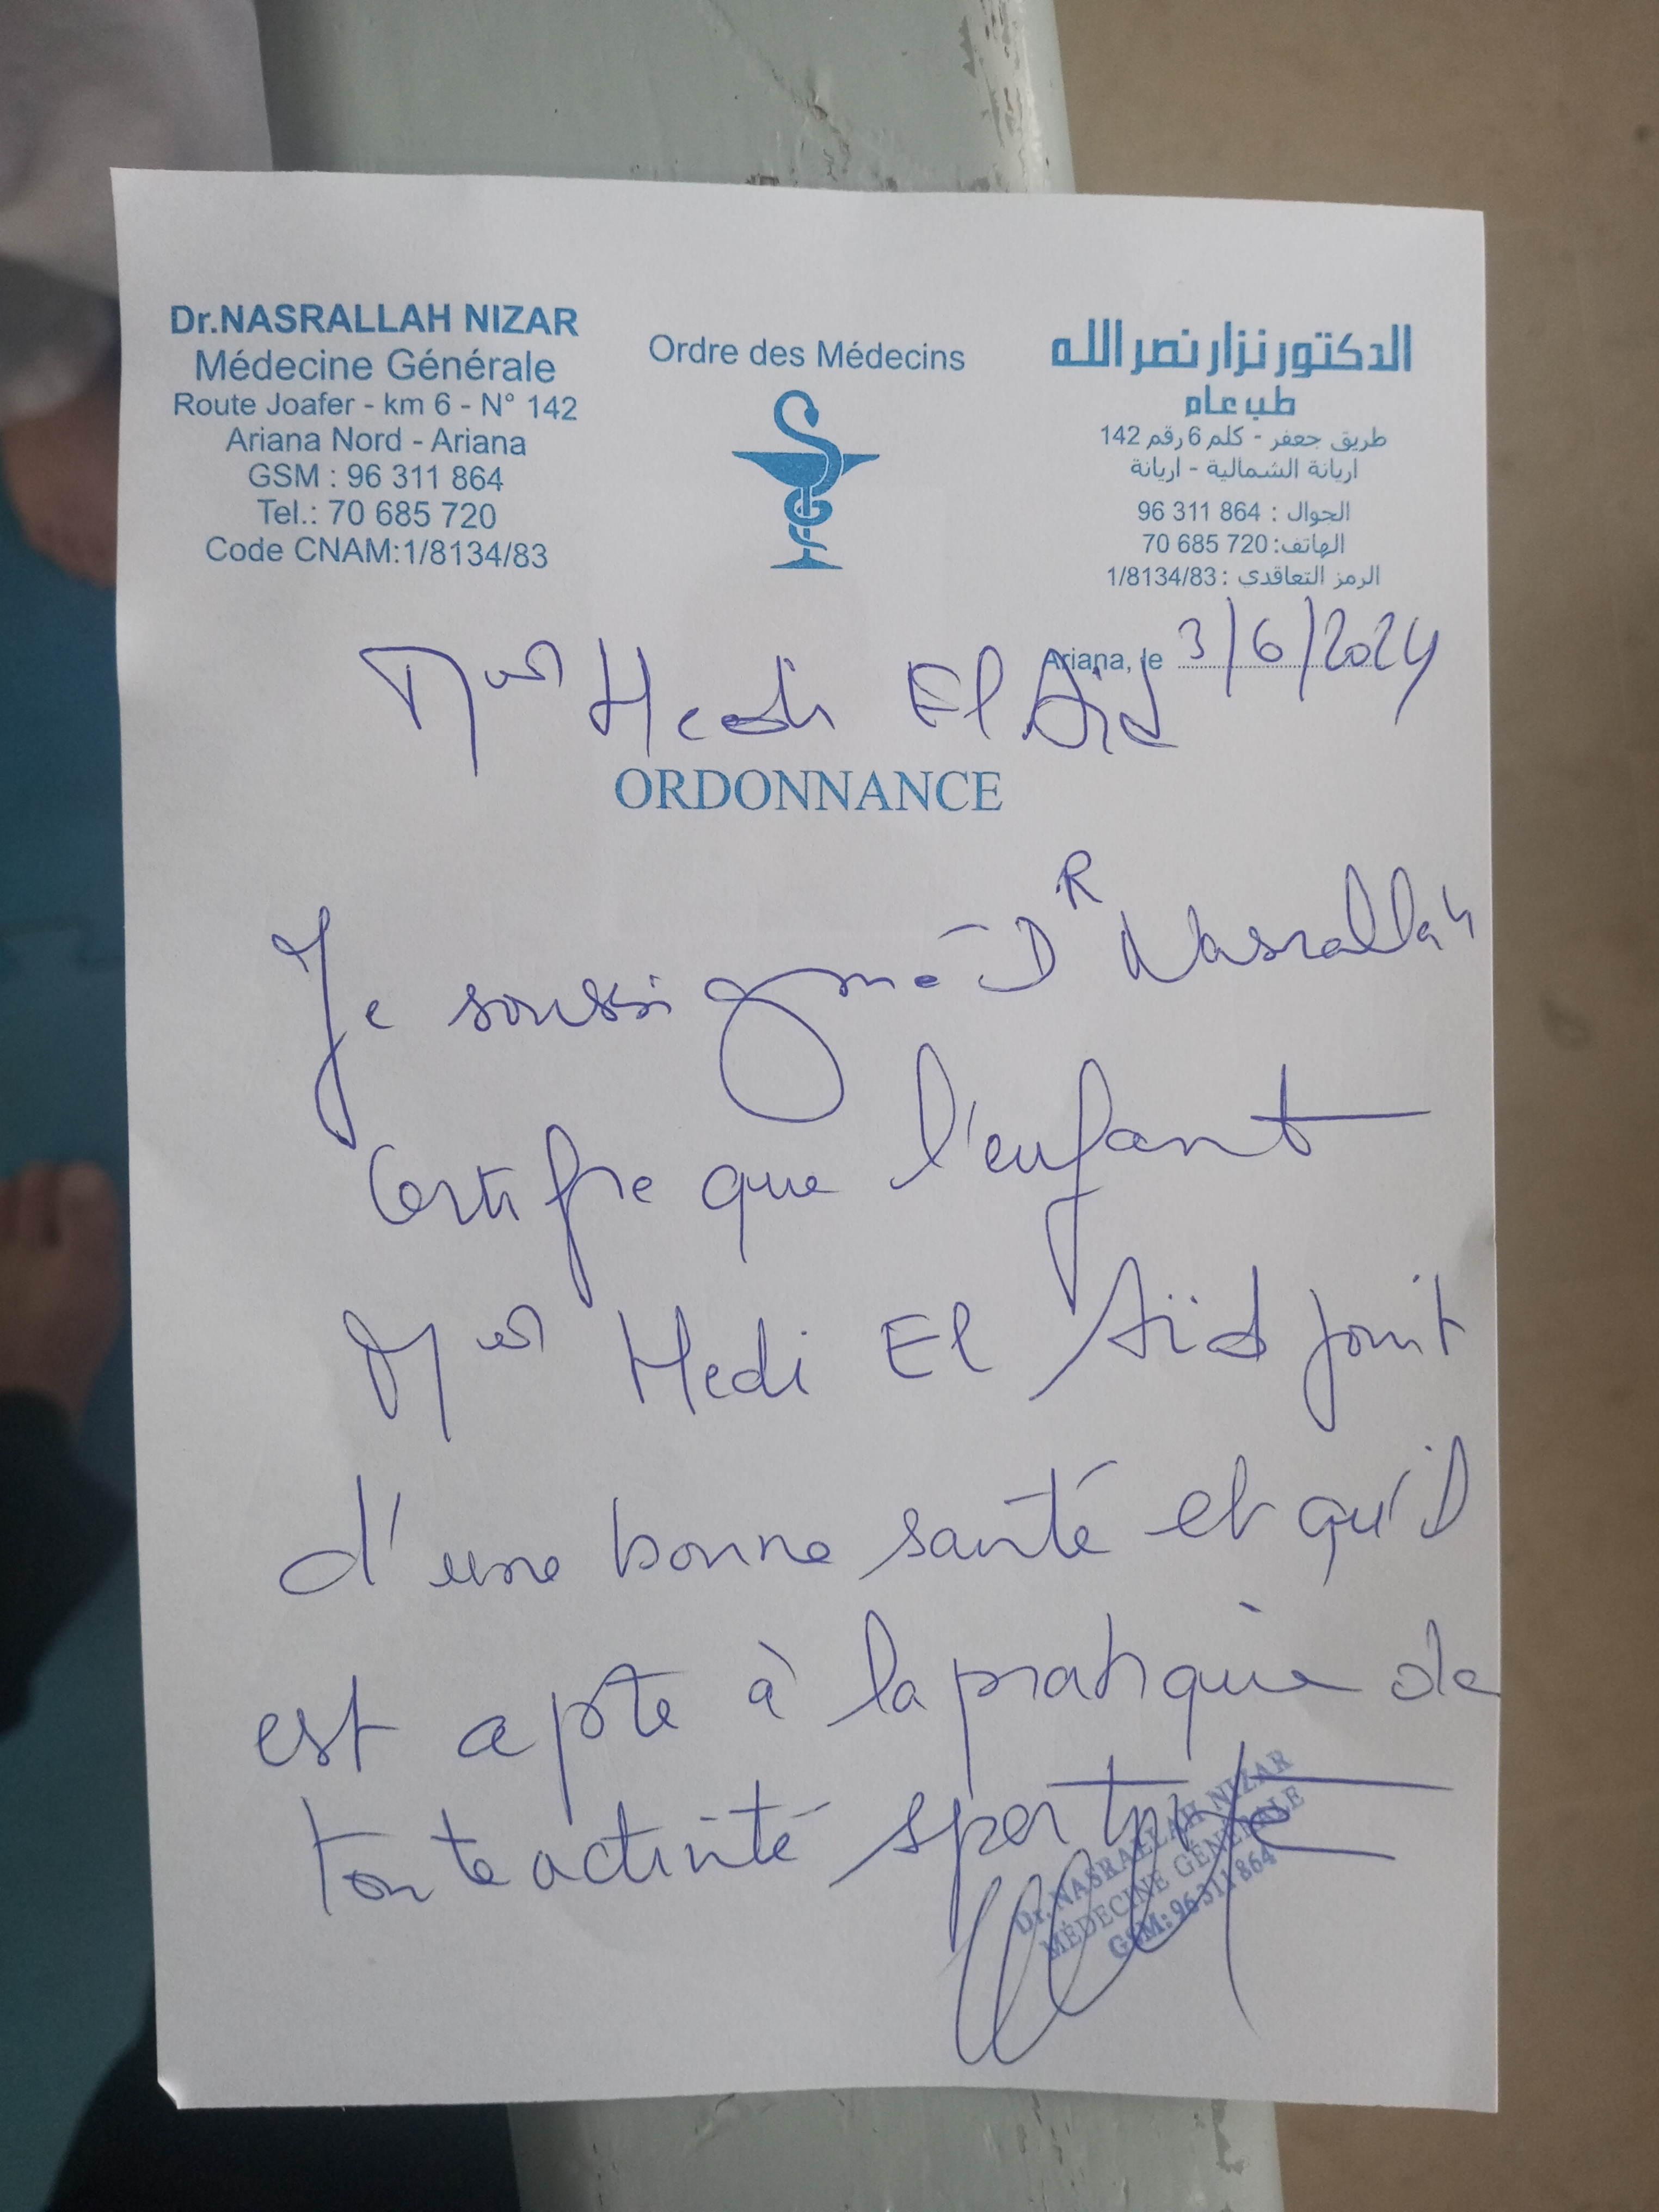 Dr.NASRALLAH NIZAR
Médecine Générale
Route Joafer - km 6 - N° 142
Ariana Nord - Ariana
GSM : 96 311 864
Tel.: 70 685 720
Code CNAM:1/8134/83
Ordre des Médecins
الدكتور نزار نصر الله
طب عام
طريق جعفر - كلم 6 رقم 142
اريانة الشمالية - اريانة
الجوال : 96 311 864
الهاتف: 70 685 720
الرمز التعاقدي : 1/8134/83
Ariana, le 3/6/2024
Hedi El Aïd
ORDONNANCE
Je soussigné DR Nasrallah
Certifie que l'enfant
Hedi El Aïd jouit
d'une bonne santé et qu'il
est apte à la pratique de
toute activité sportive
Dr. NASRALLAH NIZAR
MÉDECINE GÉNÉRALE
GSM: 96 311 864